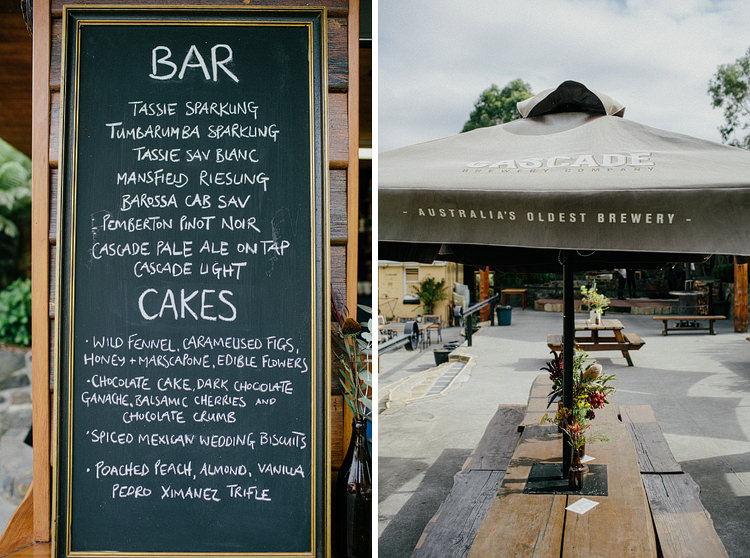 BAR
TASSIE SPARKLING
TUMBARUMBA SPARKLING
TASSIE SAV BLANC
MANSFIELD RIESLING
BAROSSA CAB SAV
PEMBERTON PINOT NOIR
CASCADE PALE ALE ON TAP
CASCADE LIGHT
CAKES
• WILD FENNEL, CARAMELISED FIGS,
HONEY + MARSCAPONE, EDIBLE FLOWERS
• CHOCOLATE CAKE, DARK CHOCOLATE
GANACHE, BALSAMIC CHERRIES AND
CHOCOLATE CRUMB
• SPICED MEXICAN WEDDING BISCUITS
• POACHED PEACH, ALMOND, VANILLA
PEDRO XIMANEZ TRIFLE
CASCADE
BREWERY COMPANY
- AUSTRALIA'S OLDEST BREWERY -